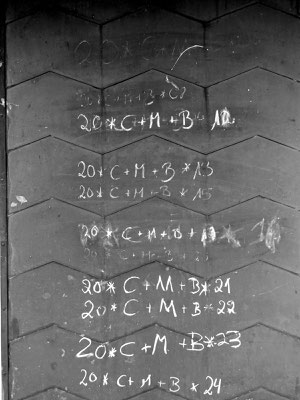 20*C+M
C+M+B*
20*C+M+B*
20*C+M+B*13
20*C+M+B*15
20*C+M+B+
C+M+B
20*C+M+B*21
20*C+M+B*22
20*C+M+B*23
20*C+M+B*24